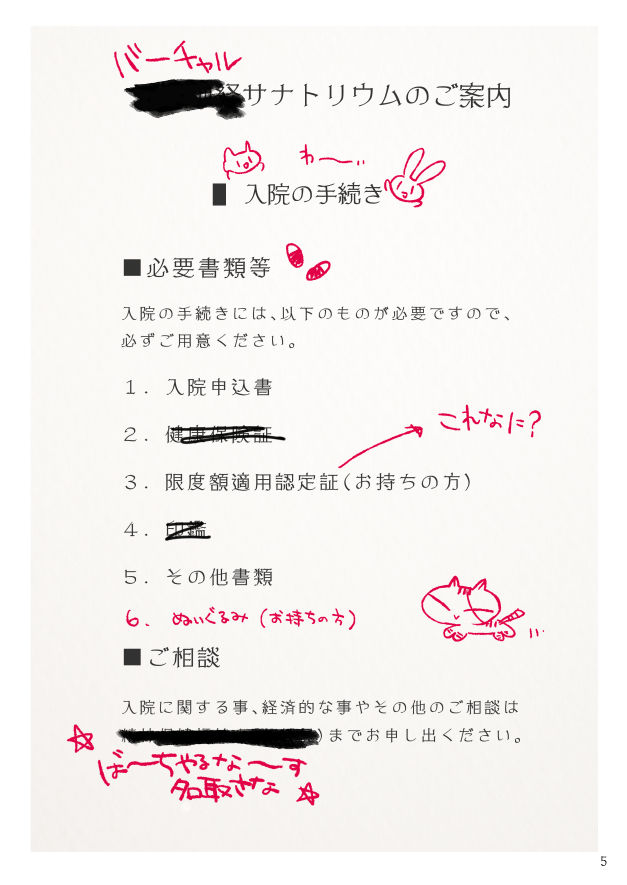 バーチャル
経サナトリウムのご案内
わ〜〜
入院の手続き
■必要書類等
入院の手続きには、以下のものが必要ですので、
必ずご用意ください。
1. 入院申込書
2. 健康保険証
これなに?
3. 限度額適用認定証(お持ちの方)
4. 印鑑
5. その他書類
6. ぬいぐるみ(お持ちの方)
■ご相談
入院に関する事、経済的な事やその他のご相談は
)までお申し出ください。
☆ ば〜ちゃるな〜す
名取さな ☆
5